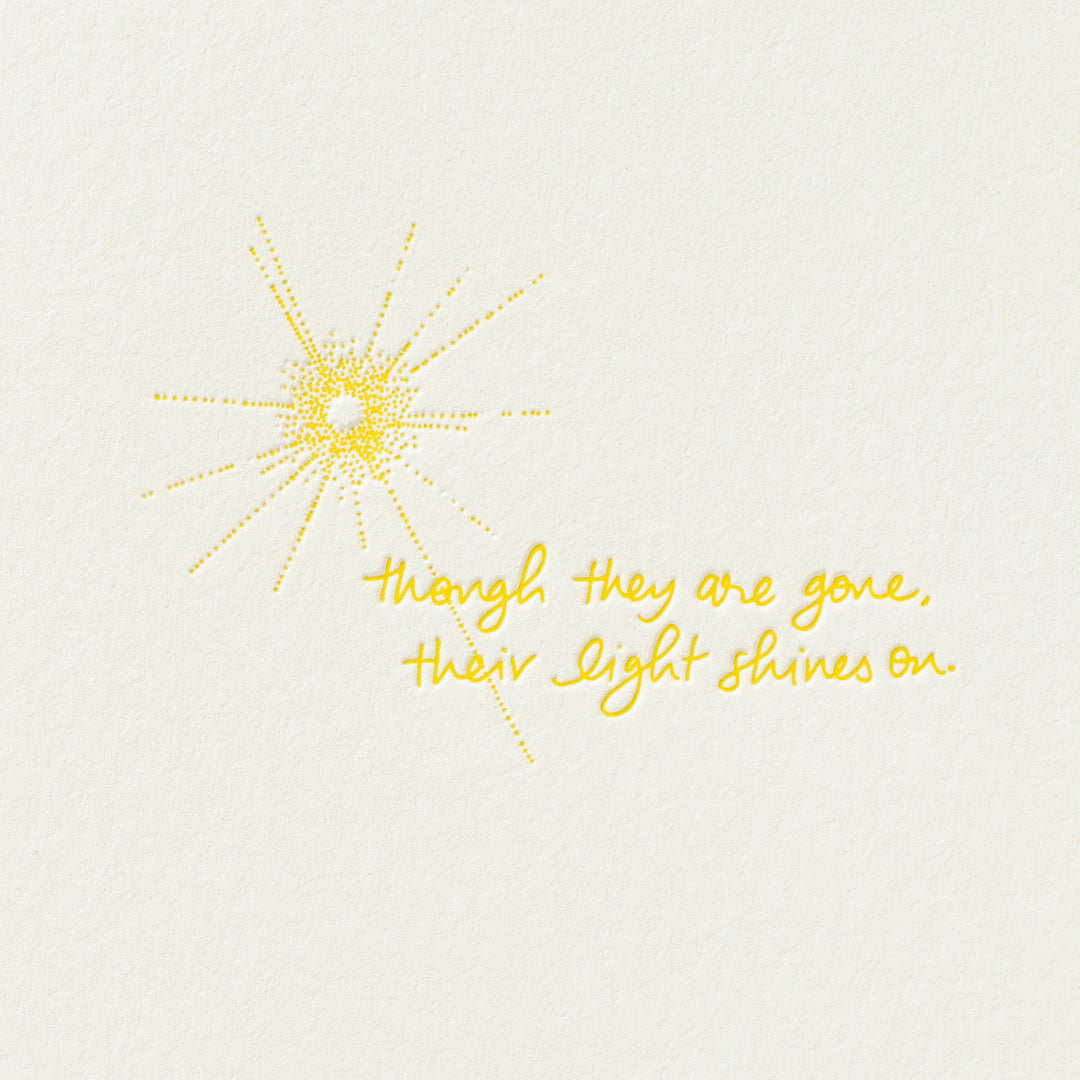 though they are gone,
their light shines on.